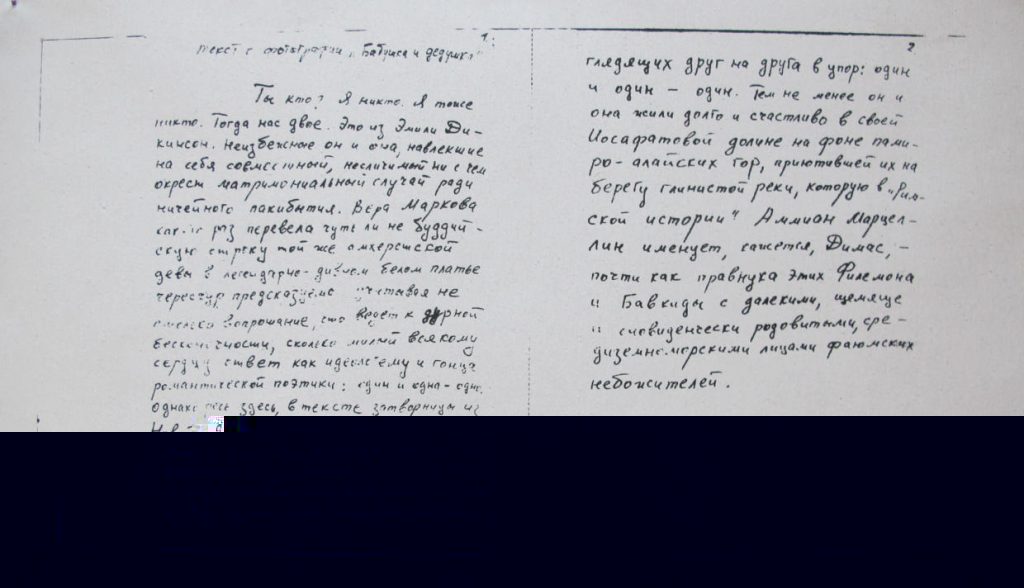 1.
текст с фотографии „Бабушка и дедушка"
Ты кто? Я никто. Я тоже
никто. Тогда нас двое. Это из Эмили Ди-
кинсон. Неизбежные он и она, навлекшие
на себя совместный, несличимый ни с чем
окрест матримониальный случай ради
ничейного пакибытия. Вера Маркова
как-то раз перевела чуть ли не буддий-
скую строку той же амхерстской
девы в легендарно-дивном белом платье
чересчур предсказуемо учитывая не
столько вопрошание, что ведет к дурной
бесконечности, сколько милый всякому
сердцу ответ как идеологему и гонца
романтической поэтики: один и одна - одно.
Однако здесь, в тексте затворницы из
2
глядящих друг на друга в упор: один
и один — один. Тем не менее он и
она жили долго и счастливо в своей
Иосафатовой долине на фоне пами-
ро-алайских гор, приютившей их на
берегу глинистой реки, которую в „Рим-
ской истории" Аммиан Марцел-
лин именует, кажется, Димас, —
почти как правнука этих Филемона
и Бавкиды с далекими, щемяще
и сновиденчески родовитыми, сре-
диземноморскими лицами фаюмских
небожителей.